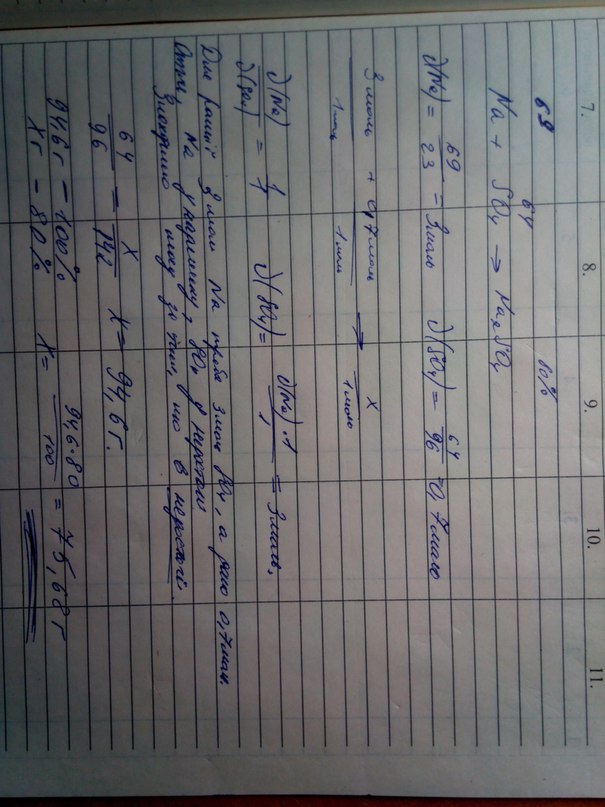 7. 8. 9. 10. 11.
69 64 80%
Na + SO₄ → Na₂SO₄
ν(Na) = 69/23 = 3 моль ν(SO₄) = 64/96 = 0,7 моль
3 моль + 0,7 моль → x
1 моль 1 моль 1 моль
ν(Na)/ν(SO₄) = 1/1 ν(SO₄) = ν(Na)·1/1 = 3 моль,
Для реакції 3 моль Na треба 3 моль SO₄, а дано 0,7 моль.
Отже, Na у надлишку, SO₄ у нестачі
Знаходимо масу за тим, що в нестачі.
64/96 = x/142 x = 94,6 г.
94,6 г – 100%
x г – 80% x = 94,6·80/100 = 75,68 г